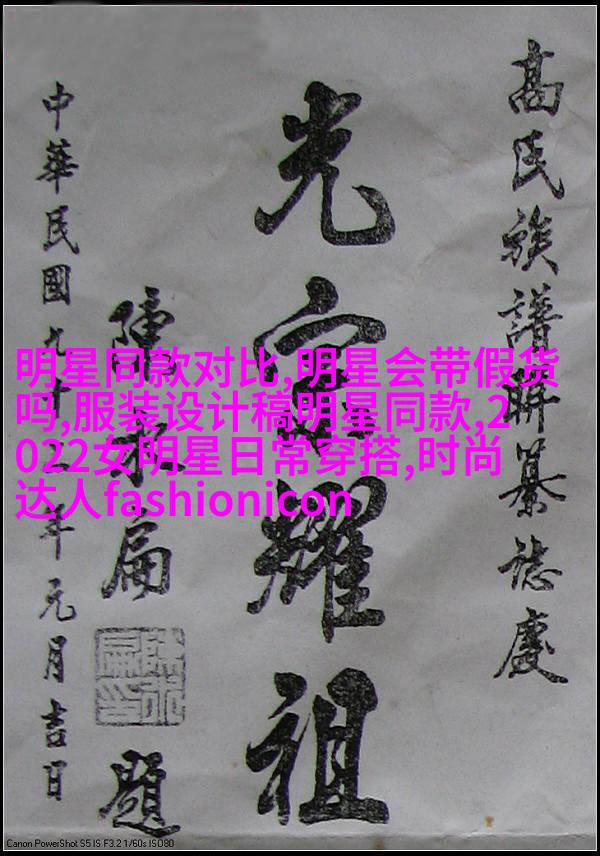 高氏族譜纂誌慶
光宗耀祖
陳水扁題
陳水扁印
中華民國九十年元月吉日
明星同款对比,明星会带假货
吗,服装设计稿明星同款,2
022女明星日常穿搭,时尚
达人fashionicon
Canon PowerShot S5 IS F3.2 1/60s ISO80